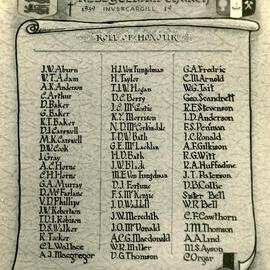 1939 INVERCARGILL 19
ROLL OF HONOUR
J.W. Aburn
W.T. Adam
A.K. Anderson
C. Arthur
D. Baker
G. Baker
K.T. Baker
D.J. Carswell
M.K. Carswell
D.W. Cook
J. Gray
A.C. Horne
C.H. Horne
G.A. Murray
D.M. Farlane
V.D. Phillips
J.W. Robertson
T.D.J. Robison
D.S. Walker
R. Tacker
C.L. Wallace
A.J. Macgregor
H.J. Von Tunzelman
H. Taylor
T.J.W. Hogan
D.C. Berry
K.M. Merrin
D.B. Wath
G.E. Mc Lachlan
H.D. Bath
J.W. Black
M.E. Von Tunzelman
D.J. Fortune
F.S. Mc Kenzie
J.D. Waldron
J.W. Meredith
J.O. Mc Donald
A.C.G. Macdonald
W.R. Miller
D.G. Thomson
G.A. Fredric
C.M. Arnold
W.G. Tait
Geo. Scandrett
R.F. Stevenson
I.D. Anderson
F.S. Penman
J.C. Ronald
A.F. Gilkison
R.G. Witt
R.A. Huffadine
J.T. Paterson
D.B. Collie
Sister Bell
W.R. Bell
C.F. Cawthorn
J.M. Thomson
A.A. Lind
M.S. Ayson
C. Orgar